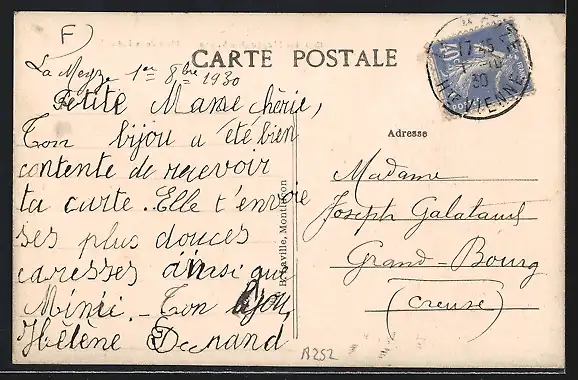 F
CARTE POSTALE
La Meyze 1er 8bre 1930
Petite Mame chérie,
Ton bijou a été bien
contente de recevoir
ta carte. Elle t'envoie
ses plus douces
caresses ainsi que
Mimi. - Ton bijou,
Hélène Durand
Adresse
Madame
Joseph
Grand-Bourg
(Creuse)
17-45
30
Hte VIENNE
A252